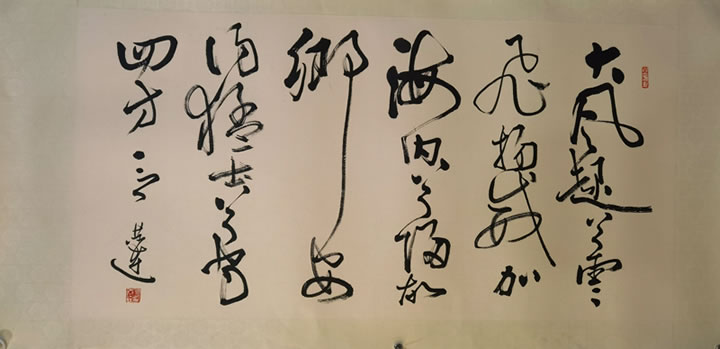 大風起兮雲
飛揚威加
海内兮歸故
鄉安
得猛士兮守
四方